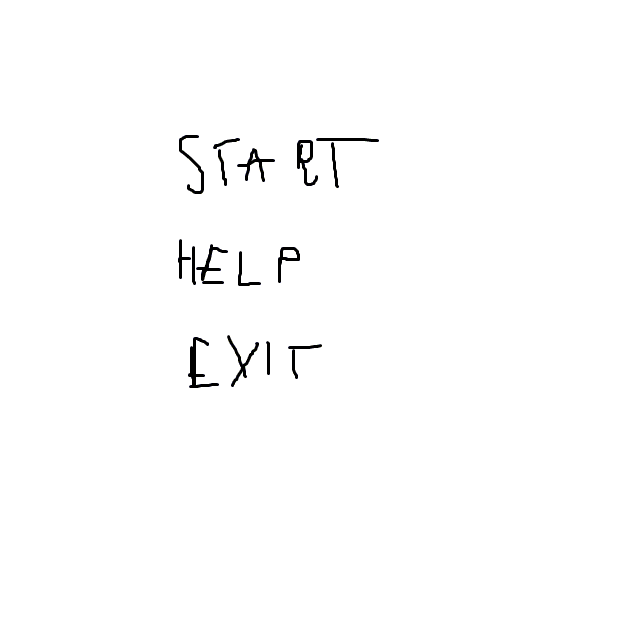 START
HELP
EXIT